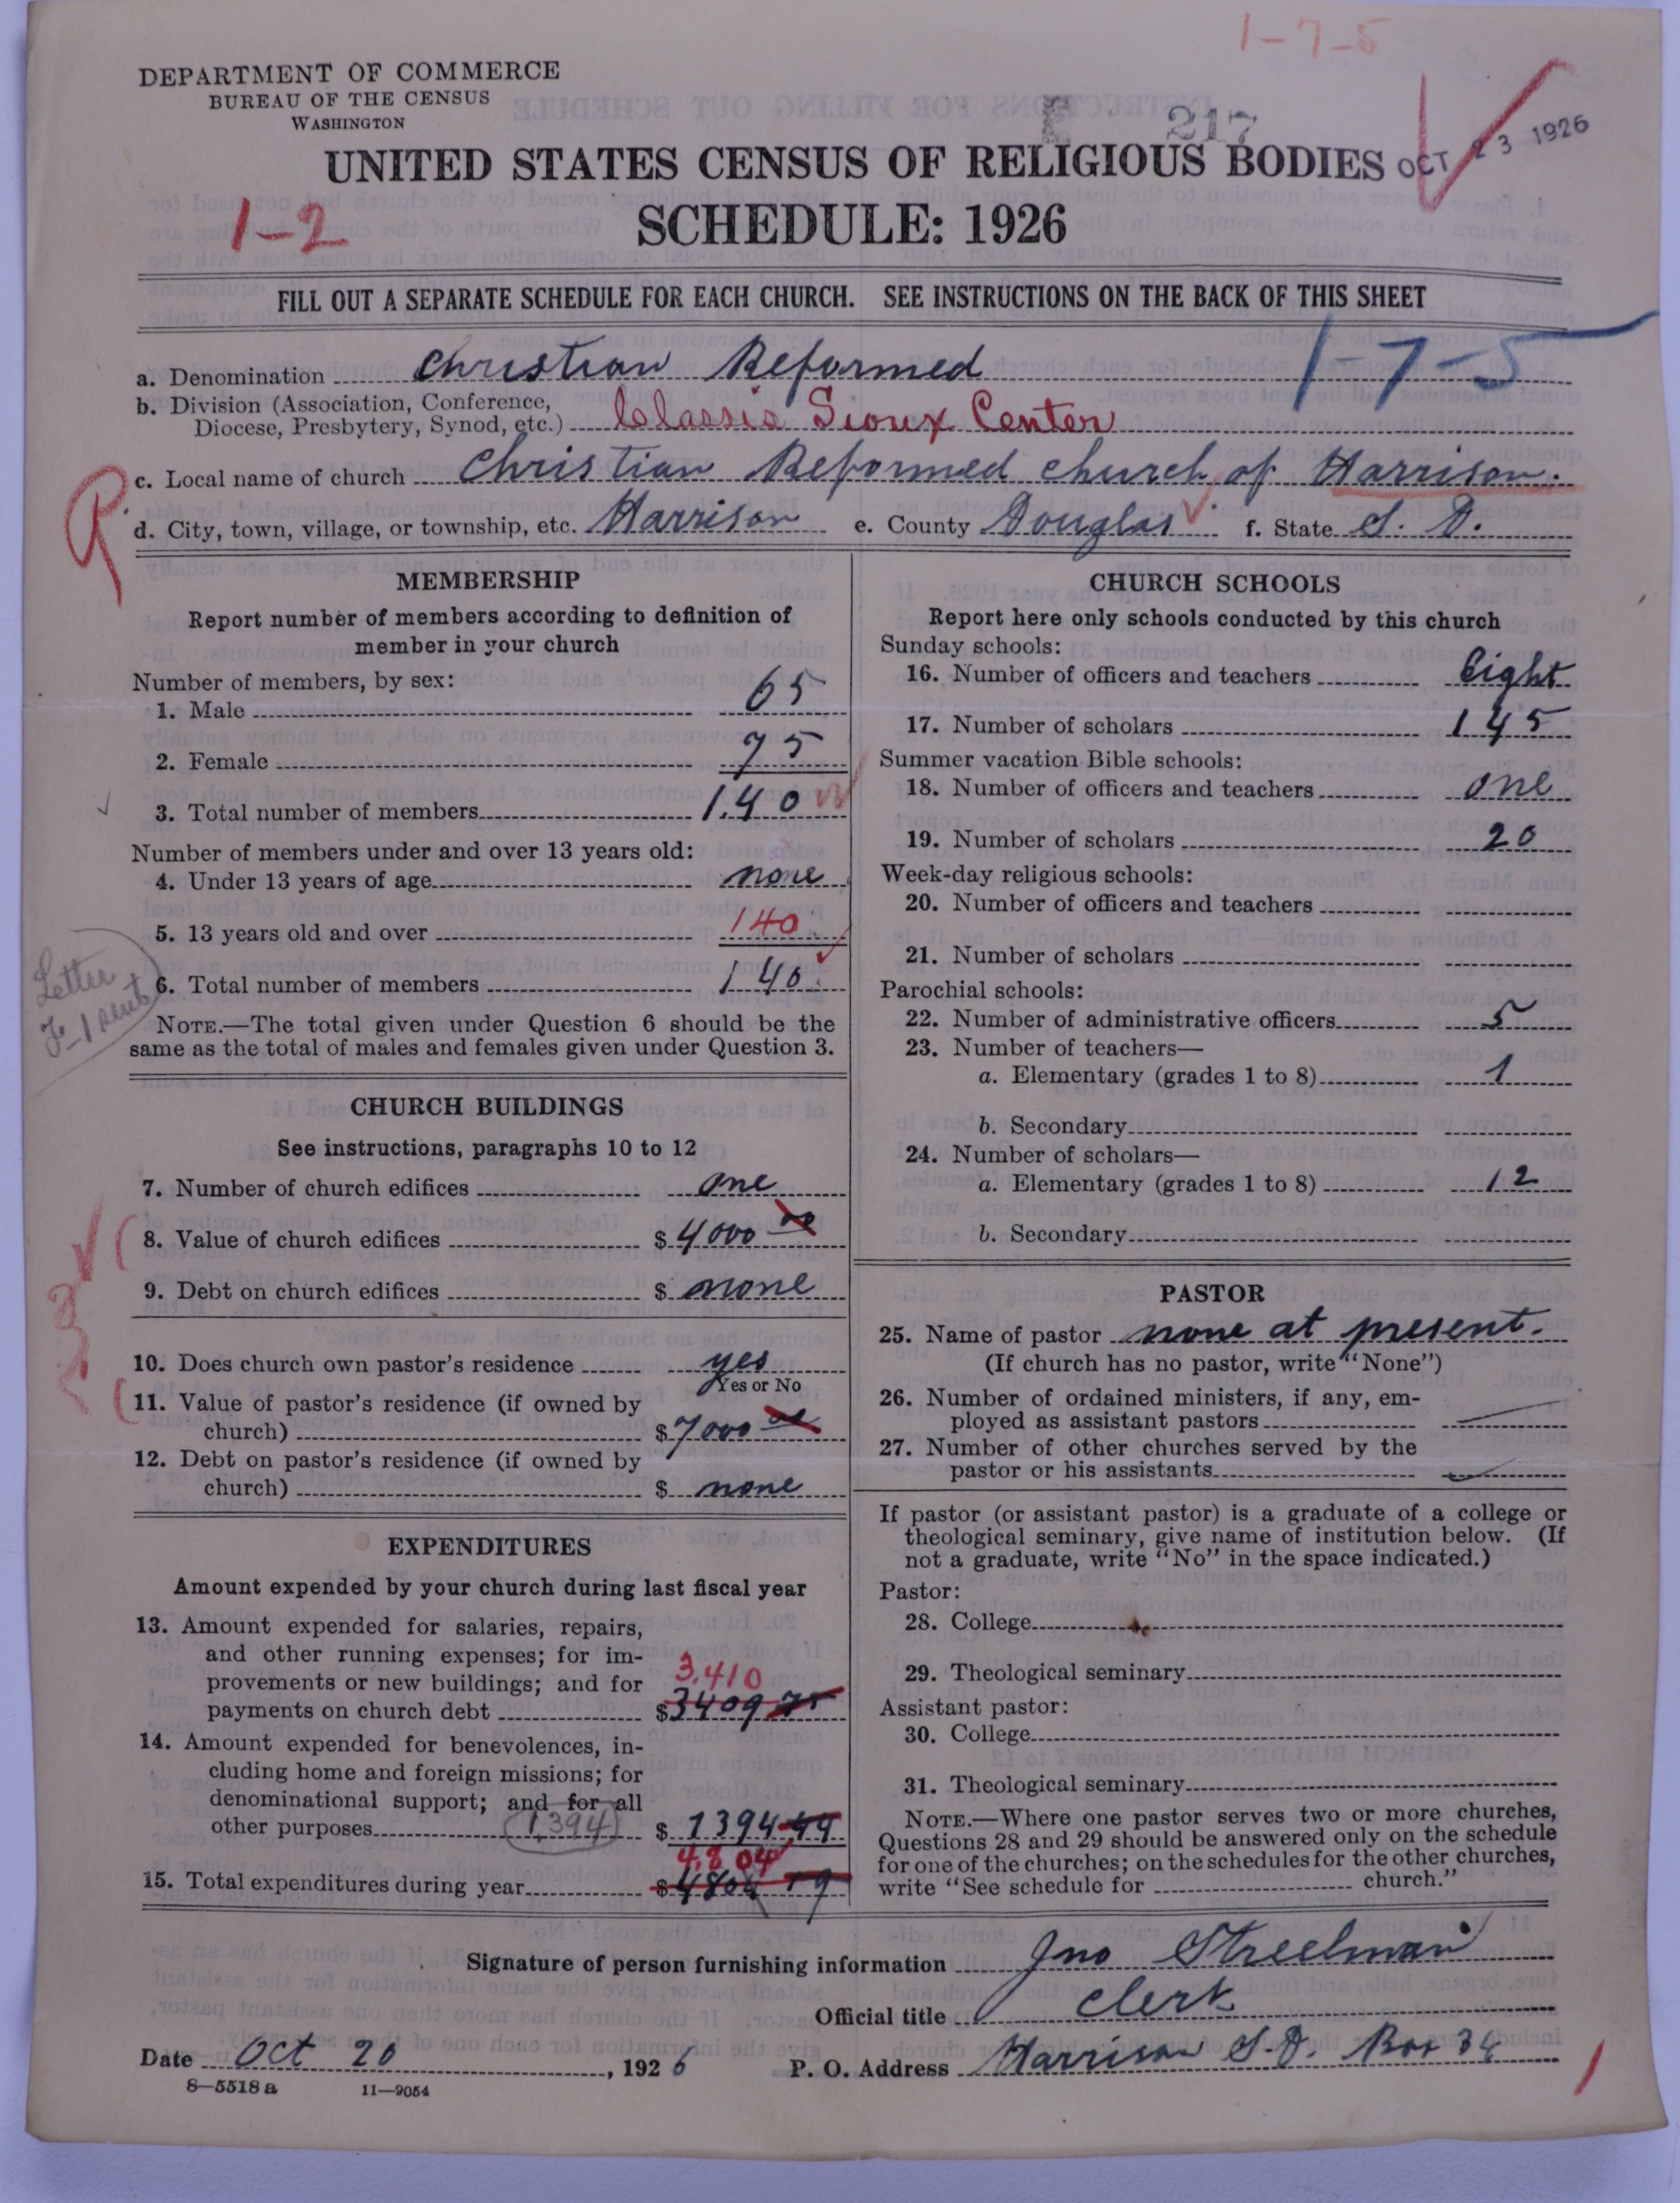 1-7-5
DEPARTMENT OF COMMERCE
BUREAU OF THE CENSUS
WASHINGTON
E 217
UNITED STATES CENSUS OF RELIGIOUS BODIES
OCT 23 1926
1-2
SCHEDULE: 1926
FILL OUT A SEPARATE SCHEDULE FOR EACH CHURCH. SEE INSTRUCTIONS ON THE BACK OF THIS SHEET
1-7-5
a. Denomination Christian Reformed
b. Division (Association, Conference,
Diocese, Presbytery, Synod, etc.) Classis Sioux Center
c. Local name of church Christian Reformed church of Harrison.
d. City, town, village, or township, etc. Harrison e. County Douglas f. State S. D.
MEMBERSHIP
Report number of members according to definition of
member in your church
Number of members, by sex:
1. Male 65
2. Female 75
3. Total number of members 140
Number of members under and over 13 years old:
4. Under 13 years of age none
5. 13 years old and over 140
6. Total number of members 140
Letter
NOTE.—The total given under Question 6 should be the
same as the total of males and females given under Question 3.
CHURCH BUILDINGS
See instructions, paragraphs 10 to 12
7. Number of church edifices one
8. Value of church edifices $ 4000 00
9. Debt on church edifices $ none
10. Does church own pastor's residence yes
Yes or No
11. Value of pastor's residence (if owned by
church) $ 7000 00
12. Debt on pastor's residence (if owned by
church) $ none
EXPENDITURES
Amount expended by your church during last fiscal year
13. Amount expended for salaries, repairs,
and other running expenses; for im-
provements or new buildings; and for 3,410
payments on church debt $ 3409 75
14. Amount expended for benevolences, in-
cluding home and foreign missions; for
denominational support; and for all
other purposes 1,394 $ 1394 44
4,804
15. Total expenditures during year $ 4804 19
CHURCH SCHOOLS
Report here only schools conducted by this church
Sunday schools:
16. Number of officers and teachers Eight
17. Number of scholars 145
Summer vacation Bible schools:
18. Number of officers and teachers one
19. Number of scholars 20
Week-day religious schools:
20. Number of officers and teachers
21. Number of scholars
Parochial schools:
22. Number of administrative officers 5
23. Number of teachers—
a. Elementary (grades 1 to 8) 1
b. Secondary
24. Number of scholars—
a. Elementary (grades 1 to 8) 12
b. Secondary
PASTOR
25. Name of pastor none at present.
(If church has no pastor, write "None")
26. Number of ordained ministers, if any, em-
ployed as assistant pastors
27. Number of other churches served by the
pastor or his assistants
If pastor (or assistant pastor) is a graduate of a college or
theological seminary, give name of institution below. (If
not a graduate, write "No" in the space indicated.)
Pastor:
28. College
29. Theological seminary
Assistant pastor:
30. College
31. Theological seminary
NOTE.—Where one pastor serves two or more churches,
Questions 28 and 29 should be answered only on the schedule
for one of the churches; on the schedules for the other churches,
write "See schedule for church."
Signature of person furnishing information Jno Streelman
Official title Clerk
Date Oct 20, 1926 P. O. Address Harrison S.D. Box 34
8—5518 a 11—9054